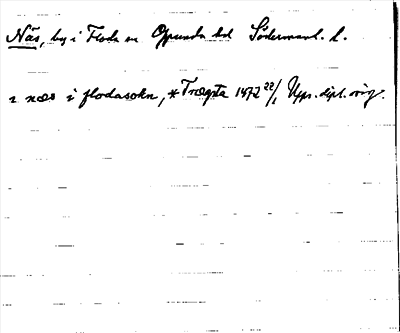 Näs, by i Floda sn Oppunda hd Södermanl. l.
i næs i flodasokn, *Træpta 1472 22/1 Upps. dipl. orig.